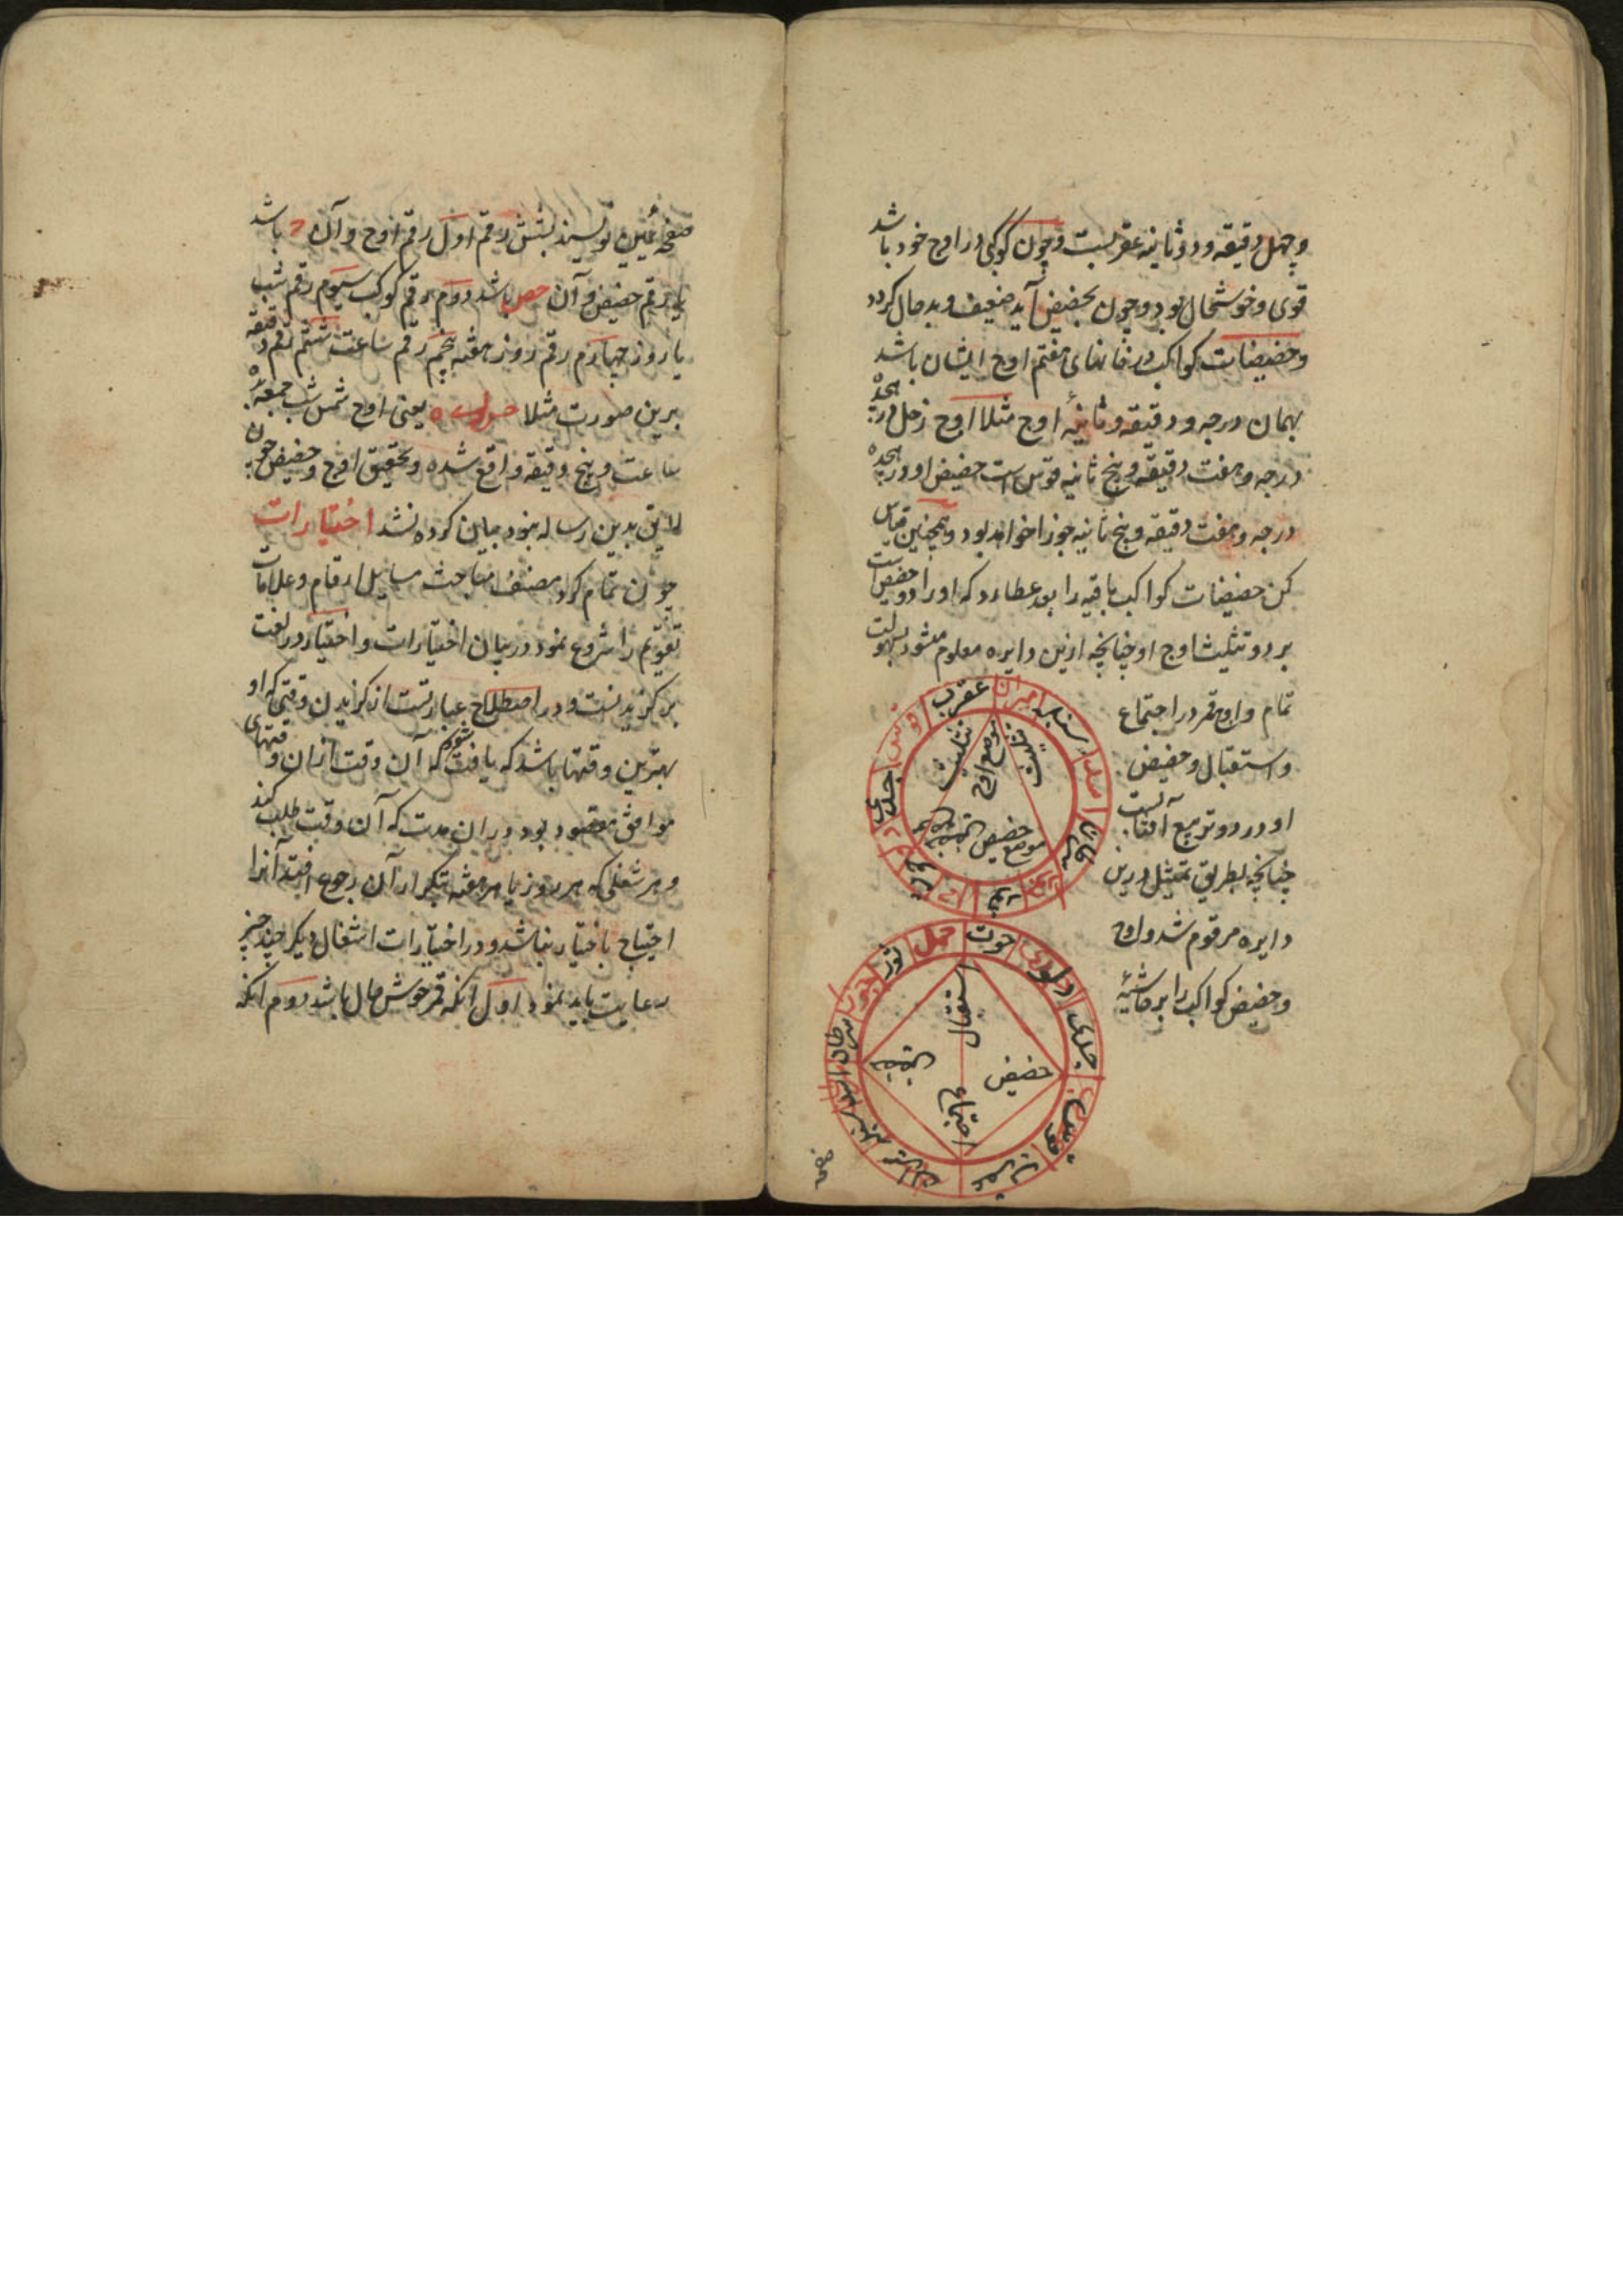 و چهل دقیقه و دو ثانیه عقربست و چون کوکبی در اوج خود باشد
قوی و خوشحال بود و چون بحضیض آید ضعیف و بد حال گردد
و حضیضات کواکب در خانهای هفتم اوج ایشان باشد
بهمان درجه و دقیقه و ثانیهٔ اوج مثلا اوج زحل در هجده
درجه و هفت دقیقه و پنج ثانیه قوس است حضیض او در هجده
درجه و هفت دقیقه و پنج ثانیه جوزا خواهد بود و همچنین قیاس
کن حضیضات کواکب باقیه را بعد عطارد که او را دو حضیض است
بر دو تثلیث اوج او چنانچه ازین دایره معلوم میشود بسهولت
تمام و اوج قمر در اجتماع
و استقبال و حضیض
او در دو تربیع آفتابست
چنانچه بطریق تمثیل درین
دایره مرقوم شد و اوج
و حضیض کواکب را بر حاشیهٔ
عقرب
میزان
سنبله
اسد
سرطان
جوزا
ثور
حمل
حوت
دلو
جدی
قوس
تثلیث
موضع اوج
تثلیث
موضع حضیض
حوت
دلو
جدی
قوس
عقرب
میزان
سنبله
اسد
سرطان
جوزا
ثور
حمل
استقبال
حضیض
اجتماع
صفحه
صفحهٔ یمین نویسند بشش رقم اول رقم اوج و آن ح باشد
یا رقم حضیض و آن حص باشد دوم رقم کوکب سیوم رقم شب
یا روز چهارم رقم روز هفته پنجم رقم ساعت ششم رقم دقیقه
برین صورت مثلا یعنی اوج شمس شب جمعه
ساعت و پنج دقیقه واقع شده و تحقیق اوج و حضیض چون
لایق بدین رساله نبود بیان کرده نشد اختیارات
چون تمام کرد مصنف مباحث مسایل ارقام و علامات
تقویم را شروع نمود در بیان اختیارات و اختیار در لغت
برگزیدنست و در اصطلاح عبارتست از گزیدن وقتی که او
بهترین وقتها باشد که یافت شود که آن وقت ازان وقتهای
موافق مقصود بود دران مدت که آن وقت طلب کنند
و هر شغلی که هر روز یا هر هفته بتکرار آن رجوع افتد آنرا
احتیاج باختیار نباشد و در اختیارات اشغال دیگر چند چیز
رعایت باید نمود اول آنکه قمر خوش حال باشد دوم آنکه